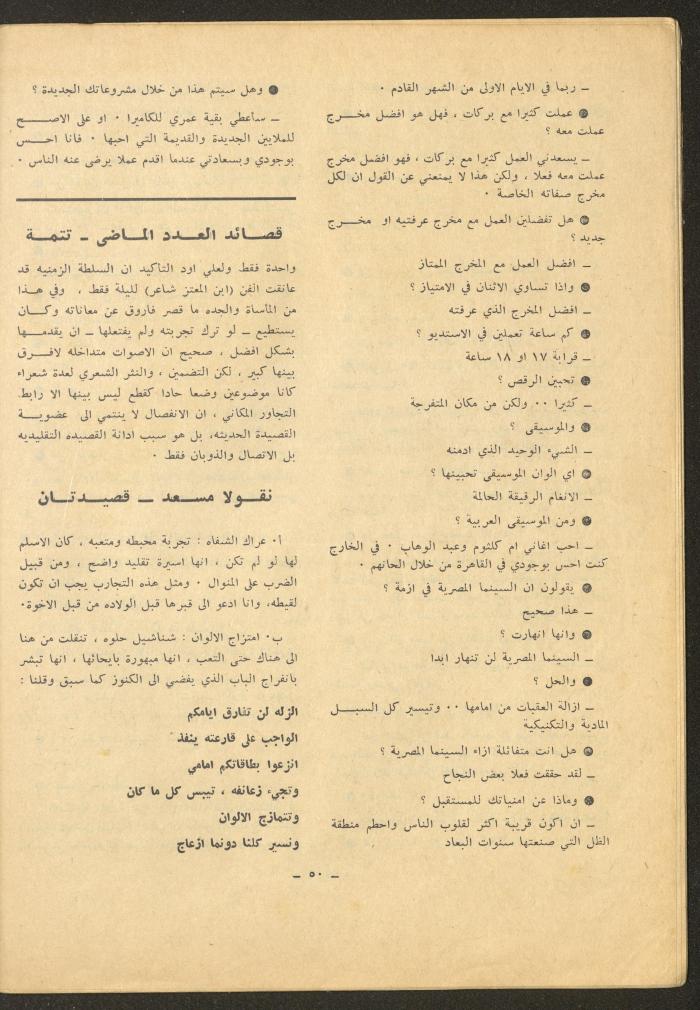 ـ ربما في الايام الاولى من الشهر القادم ٠
● عملت كثيرا مع بركات ، فهل هو افضل مخـــرج
عملت معه ؟
ـ يسعدني العمل كثيرا مع بركات ، فهو افضل مخرج
عملت معه فعلا ، ولكن هذا لا يمنعني عن القول ان لكل
مخرج صفاته الخاصة ٠
● هل تفضلين العمل مع مخرج عرفتيه او مخـــرج
جديد ؟
ـ افضل العمل مع المخرج الممتاز
● واذا تساوي الاثنان في الامتياز ؟
ـ افضل المخرج الذي عرفته
● كم ساعة تعملين في الاستديو ؟
ـ قرابة ١٧ او ١٨ ساعة
● تحبين الرقص ؟
ـ كثيرا ٠٠ ولكن من مكان المتفرجة
● والموسيقى ؟
ـ الشيء الوحيد الذي ادمنه
● اي الوان الموسيقى تحبينها ؟
ـ الانغام الرقيقة الحالمة
● ومن الموسيقى العربية ؟
ـ احب اغاني ام كلثوم وعبد الوهاب ٠ في الخارج
كنت احس بوجودي في القاهرة من خلال الحانهم ٠
● يقولون ان السينما المصرية في ازمة ؟
ـ هذا صحيح
● وانها انهارت ؟
ـ السينما المصرية لن تنهار ابدا
● والحل ؟
ـ ازالة العقبات من امامها ٠٠ وتيسير كل السبـــل
المادية والتكنيكية
● هل انت متفائلة ازاء السينما المصرية ؟
ـ لقد حققت فعلا بعض النجاح
● وماذا عن امنياتك للمستقبل ؟
ـ ان اكون قريبة اكثر لقلوب الناس واحطم منطقة
الظل التي صنعتها سنوات البعاد
● وهل سيتم هذا من خلال مشروعاتك الجديدة ؟
ـ سأعطي بقية عمري للكاميرا ٠ او على الاصـــح
للملايين الجديدة والقديمة التي احبها ٠ فانا احـــس
بوجودي وبسعادتي عندما اقدم عملا يرضى عنه الناس ٠
قصـائد العـدد المـاضى ـ تتمـة
واحدة فقط ولعلي اود التأكيد ان السلطة الزمنيه قد
عانقت الفن (ابن المعتز شاعر) لليلة فقط ، وفي هـــذا
من المأساة والجده ما قصر فاروق عن معاناته وكـــان
يستطيع ـ لو ترك تجربته ولم يفتعلها ـ ان يقدمـــها
بشكل افضل ، صحيح ان الاصوات متداخله لافـــرق
بينها كبير ، لكن التضمين ، والنثر الشعري لعدة شعراء
كانا موضوعين وضعا حادا كقطع ليس بينها الا رابط
التجاور المكاني ، ان الانفصال لا ينتمي الى عضويـــة
القصيدة الحديثه، بل هو سبب ادانة القصيده التقليديه
بل الاتصال والذوبان فقط ٠
نقـولا مسـعد ــ قصيـدتـان
أ٠ عراك الشفاه : تجربة محيطه ومتعبه ، كان الاسلم
لها لو لم تكن ، انها اسيرة تقليد واضح ، ومن قبيل
الضرب على المنوال ٠ ومثل هذه التجارب يجب ان تكون
لقيطه، وانا ادعو الى قبرها قبل الولاده من قبل الاخوة٠
ب٠ امتزاج الالوان : شناشيل حلوه ، تنقلت من هنا
الى هناك حتى التعب ، انها مبهورة بايحائها ، انها تبشر
بانفراج الباب الذي يفضي الى الكنوز كما سبق وقلنا :
الزله لن تفارق ايامكم
الواجب على قارعته ينفذ
انزعوا بطاقاتكم امامي
وتجيء زعانفه ، تيبس كل ما كان
وتتمازج الالوان
ونسير كلنا دونما ازعاج
ـ ٥٠ ـ